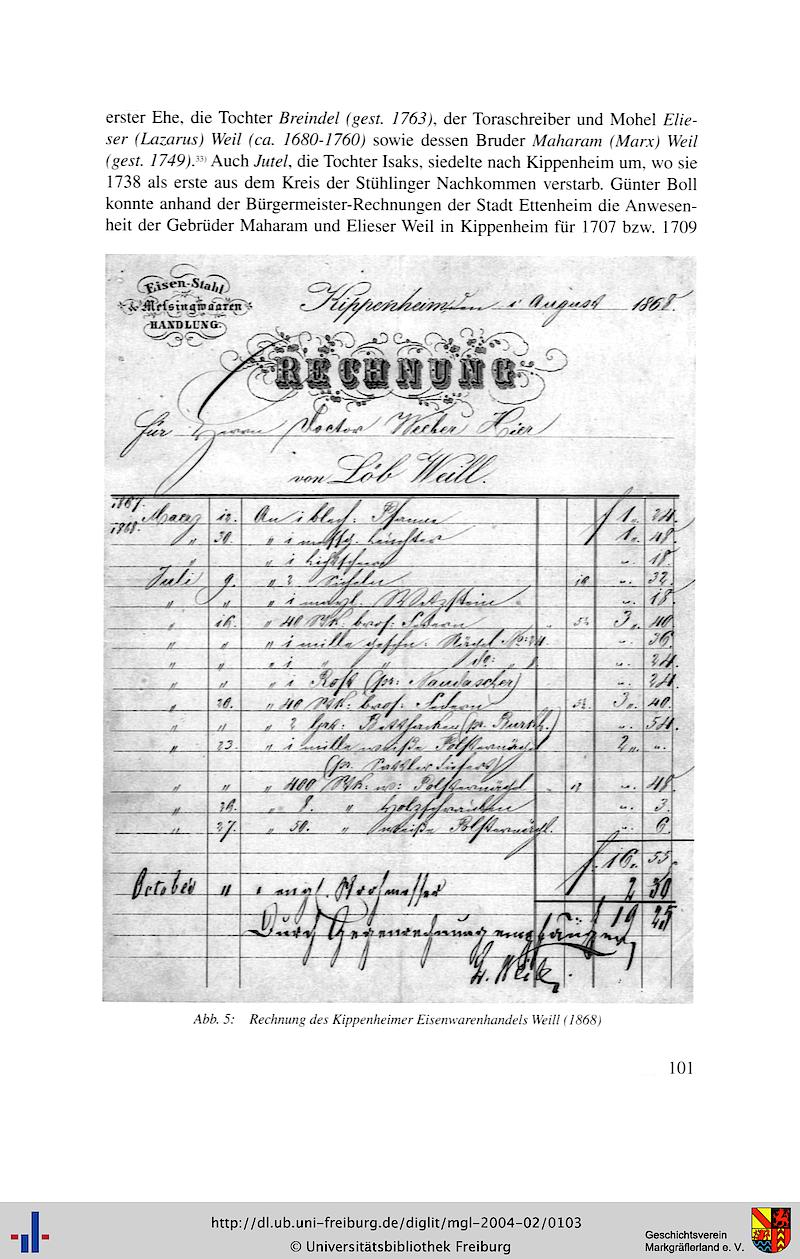 erster Ehe, die Tochter Breindel (gest. 1763), der Toraschreiber und Mohel Elie-
ser (Lazarus) Weil (ca. 1680-1760) sowie dessen Bruder Maharam (Marx) Weil
(gest. 1749).33) Auch Jutel, die Tochter Isaks, siedelte nach Kippenheim um, wo sie
1738 als erste aus dem Kreis der Stühlinger Nachkommen verstarb. Günter Boll
konnte anhand der Bürgermeister-Rechnungen der Stadt Ettenheim die Anwesen-
heit der Gebrüder Maharam und Elieser Weil in Kippenheim für 1707 bzw. 1709
Eisen-Stahl
& Messingwaaren
HANDLUNG.
Kippenheim den 1 August 1868.
RECHNUNG
für Herrn Doctor Weeber Hier
von Löb Weill.
1867.
1868. Maerz 12. An 1 blech: Pfanne f 1„ 24.
„ 30. „ 1 messg. Leuchter 1„ 48.
„ 1 Lichtscheere „ 18.
Juli 9. „ 2 Sicheln 16 „ 32.
„ „ „ 1 Wetzstein „ 18.
„ 16. „ 40 Stk: Federn 5½ 3„ 40.
„ „ „ 1 mille Nägel No: 24. „ 36.
„ „ „ 1 „ „ do: „ „ 24.
„ „ „ 1 Rost (pr: Naudascher) „ 24.
„ 20. „ 40 Stk: Federn 5½. 3„ 40.
„ „ „ 2 „ 54.
„ 23. „ 1 mille weiße Polsternägel 2„ „
(pr. Sattler)
„ „ „ 400 Stk: w: Polsternägel 12 „ 48.
„ 26. „ 8. „ Holzschrauben „ 3.
„ 27. „ 50. „ weiße Polsternägel. „ 6.
f. 16„ 55.
October „ 1 engl. Strohmesser 2 30
f 19 25
Durch Gegenrechnung empfangen
L. Weill
Abb. 5: Rechnung des Kippenheimer Eisenwarenhandels Weill (1868)
101
http://dl.ub.uni-freiburg.de/diglit/mgl-2004-02/0103
© Universitätsbibliothek Freiburg
Geschichtsverein
Markgräflerland e. V.